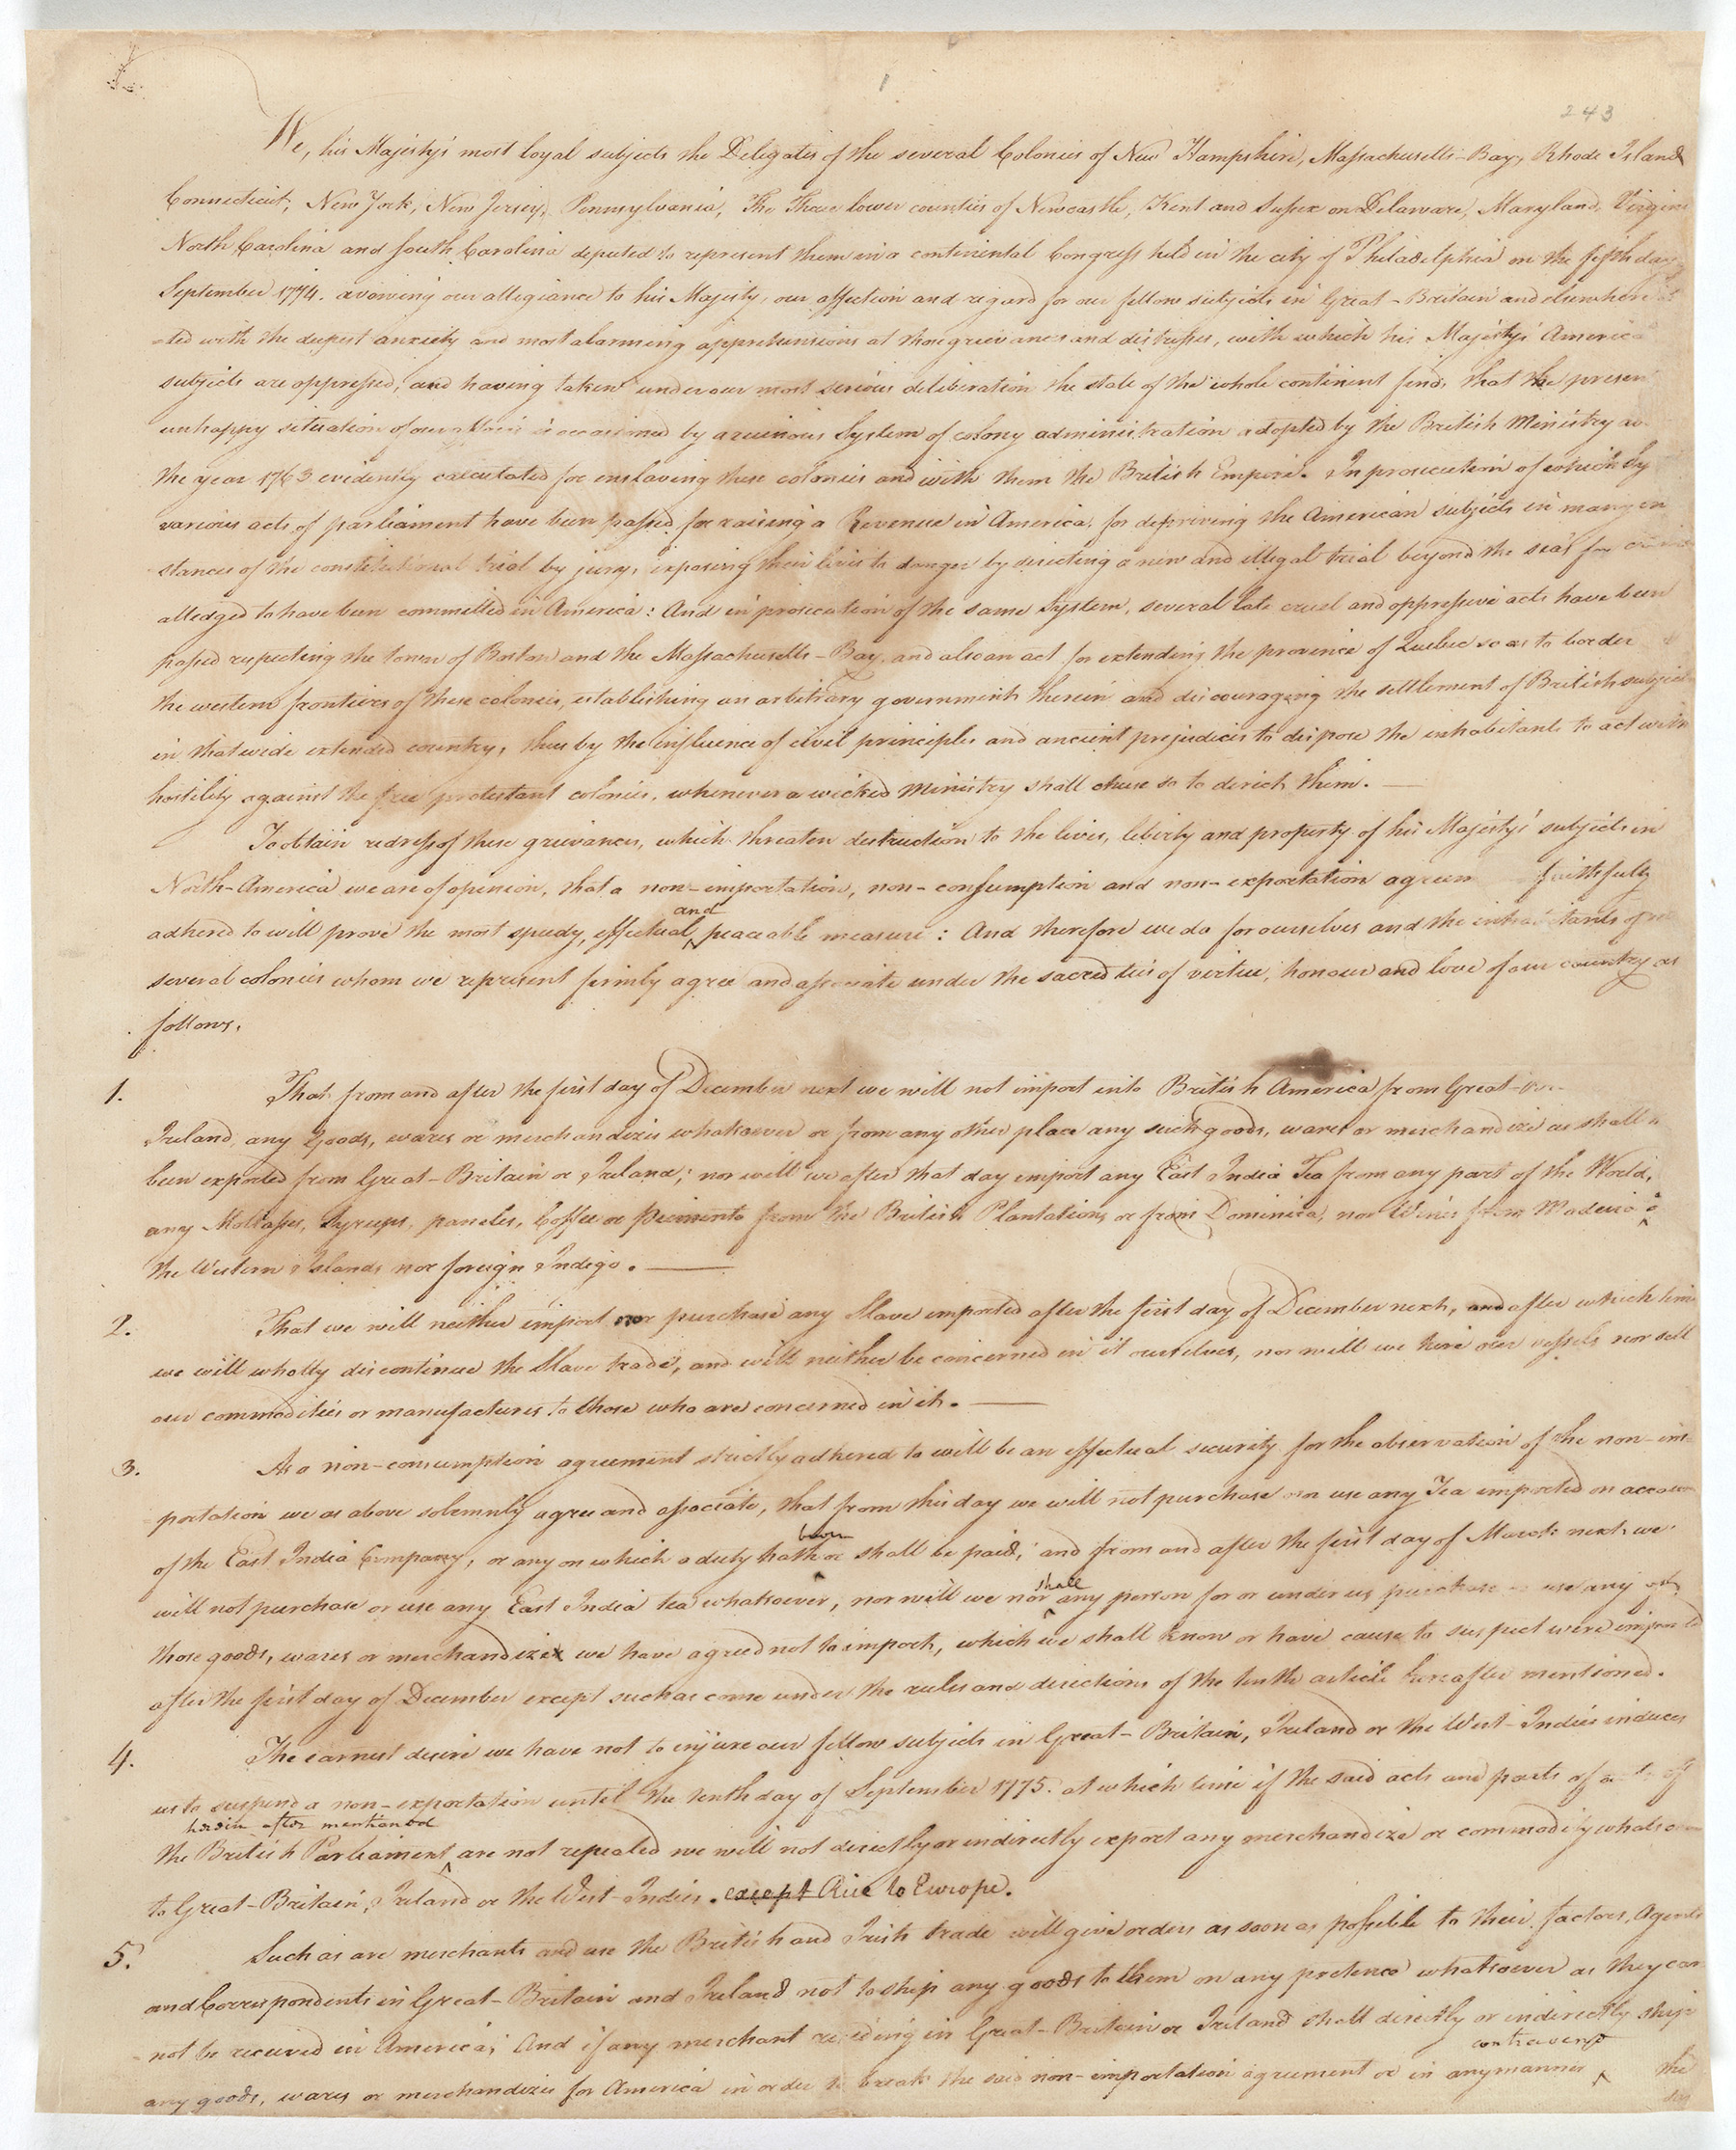 1
243
We, his Majesty's most loyal subjects the Delegates of the several Colonies of New Hampshire, Massachusetts-Bay, Rhode Island
Connecticut, New York, New Jersey, Pennsylvania, The Three lower counties of Newcastle, Kent and Sussex on Delaware, Maryland, Virgini
North Carolina and South Carolina deputed to represent them in a continental Congress held in the city of Philadelphia on the fifth day
September 1774. avowing our allegiance to his Majesty, our affection and regard for our fellow subjects in Great-Britain and elsewhere
-ted with the deepest anxiety and most alarming apprehensions at those grievances and distresses, with which his Majesty's America
subjects are oppressed, and having taken under our most serious deliberation the state of the whole continent find, that the presen
unhappy situation of our affairs is occasioned by a ruinous System of colony administration adopted by the British Ministry
the year 1763 evidently calculated for enslaving these colonies and with them the British Empire. In prosecution of which Sy
various acts of parliament have been passed for raising a Revenue in America, for depriving the American subjects in many in
stances of the constitutional trial by jury, exposing their lives to danger by directing a new and illegal trial beyond the seas for
alledged to have been committed in America: And in prosecution of the same system, several late cruel and oppressive acts have been
passed respecting the town of Boston and the Massachusetts-Bay, and also an act for extending the province of Quebec so as to border
the western frontiers of these colonies, establishing an arbitrary government therein and discouraging the settlement of British subjec
in that wide extended country; thus by the influence of civil principles and ancient prejudices to dispose the inhabitants to act with
hostility against the free protestant colonies, whenever a wicked Ministry shall chuse so to direct them.
To obtain redress of these grievances, which threaten destruction to the lives, liberty and property of his Majesty's subjects in
North-America we are of opinion, that a non-importation, non-consumption and non-exportation agreem faithfully
and
adhered to will prove the most speedy, effectual, peaceable measure: And therefore we do for ourselves and the inhabitants of
several colonies whom we represent firmly agree and associate under the sacred ties of virtue, honour and love of our country as
follows.
1. That from and after the first day of December next we will not import into British America from Great-
Ireland, any Goods, wares or merchandizes whatsoever or from any other place any such goods, wares or merchandize as shall
been exported from Great-Britain or Ireland; nor will we after that day import any East India Tea from any part of the World,
any Molasses, Syrups, paneles, Coffee or Piemento from the British Plantations or from Dominica, nor Wines from Madeira
the Western Islands nor foreign Indigo.
2. That we will neither import nor purchase any Slave imported after the first day of December next, and after which time
we will wholly discontinue the Slave trade, and will neither be concerned in it ourselves, nor will we hire our vessels nor sell
our commodities or manufactures to those who are concerned in it.
3. As a non-consumption agreement strictly adhered to will be an effectual security for the observation of the non-im-
portation we as above solemnly agree and associate, that from this day we will not purchase or use any Tea imported on accou
been
of the East India Company, or any on which a duty hath or shall be paid; and from and after the first day of March next we
shall
will not purchase or use any East India tea whatsoever, nor will we nor any person for or under us purchase or use any of
those goods, wares or merchandize we have agreed not to import, which we shall know or have cause to suspect were imported
after the first day of December except such as come under the rules and directions of the tenth article hereafter mentioned.
4. The earnest desire we have not to injure our fellow subjects in Great-Britain, Ireland or the West-Indies induces
us to suspend a non-exportation until the tenth day of September 1775. at which time if the said acts and parts of acts of
herein after mentioned
the British Parliament are not repealed we will not directly or indirectly export any merchandize or commodity whatsoe
to Great-Britain, Ireland or the West Indies. except Rice to Europe.
5. Such as are merchants and use the British and Irish trade will give orders as soon as possible to their factors, Agents
and Correspondents in Great-Britain and Ireland not to ship any goods to them on any pretence whatsoever as they can
not be received in America; And if any merchant residing in Great-Britain or Ireland shall directly or indirectly ship
contravene
any goods, wares or merchandizes for America in order to break the said non-importation agreement or in any manner the